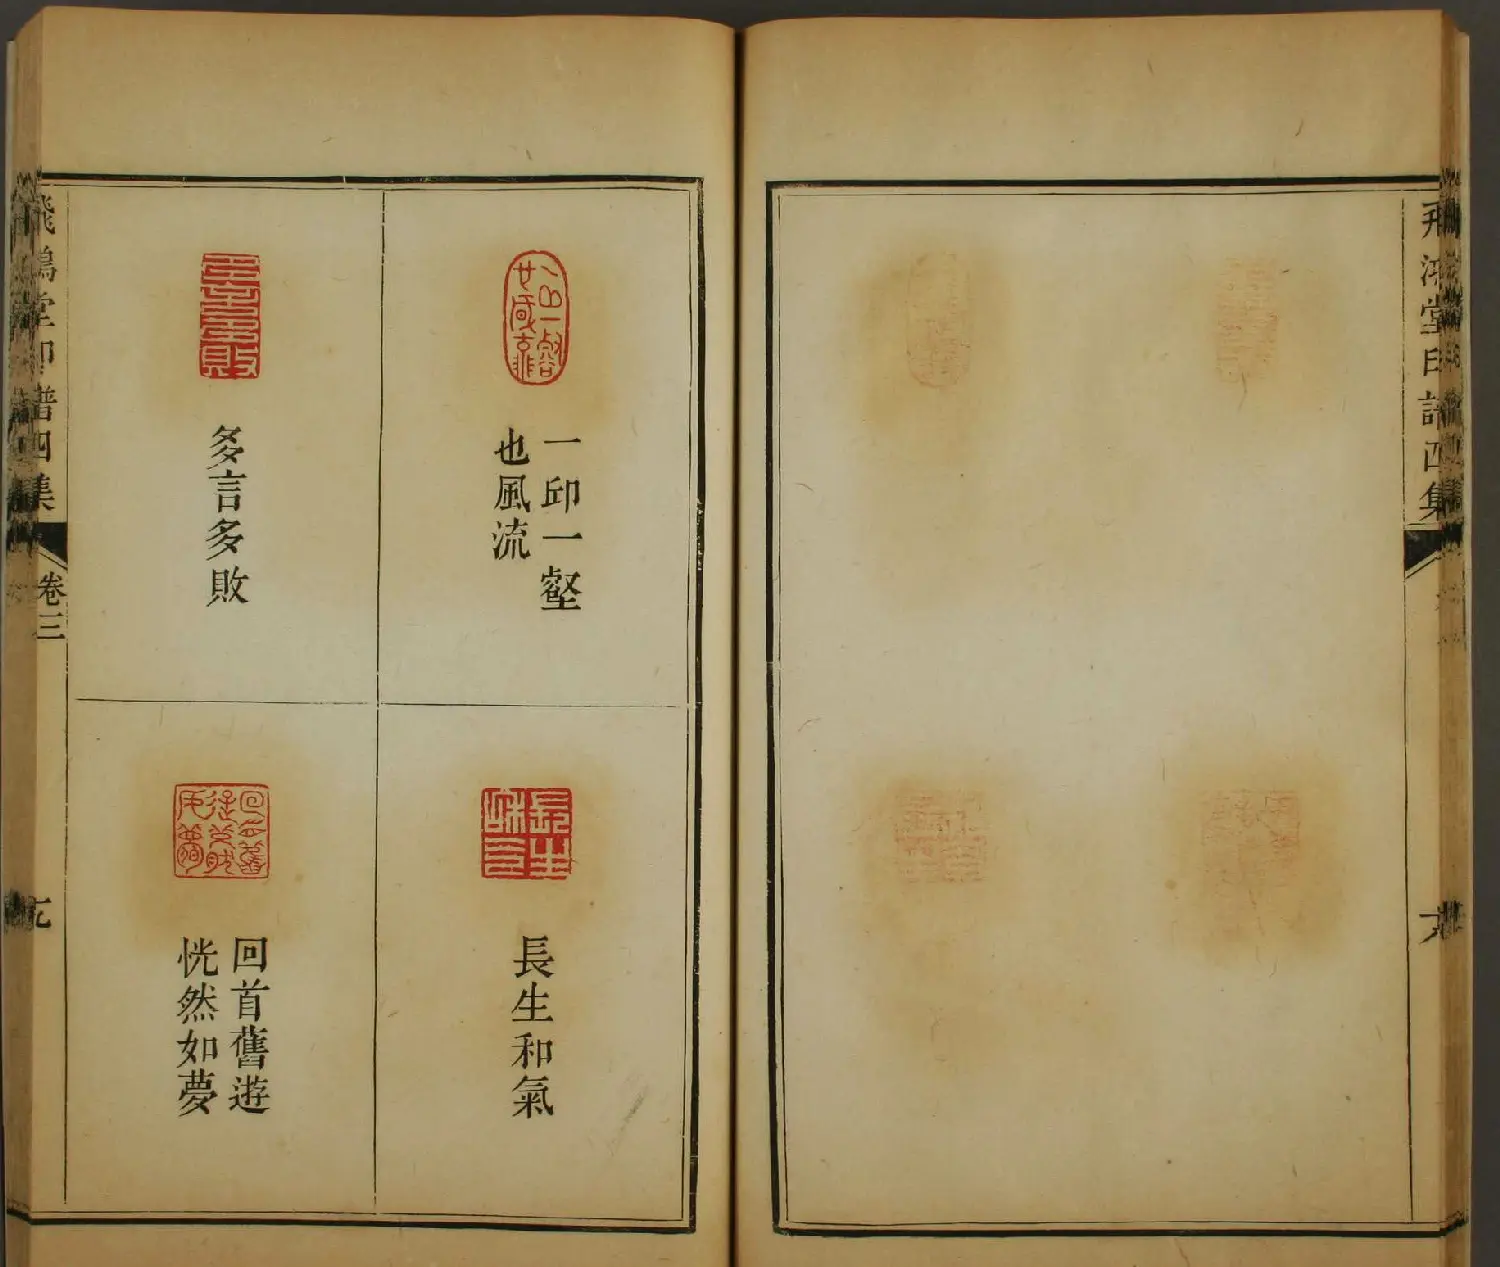 飛鴻堂印譜四集
一邱一壑
也風流
多言多敗
長生和氣
回首舊遊
恍然如夢
飛鴻堂印譜四集
卷三